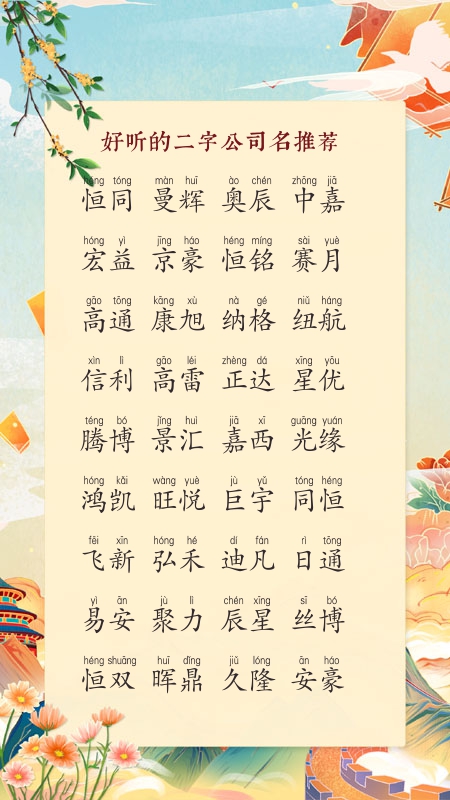 好听的二字公司名推荐
héng tóng màn huī ào chén zhōng jiā
恒同 曼辉 奥辰 中嘉
hóng yì jīng háo héng míng sài yuè
宏益 京豪 恒铭 赛月
gāo tōng kāng xù nà gé niǔ háng
高通 康旭 纳格 纽航
xìn lì gāo léi zhèng dá xīng yōu
信利 高雷 正达 星优
téng bó jǐng huì jiā xī guāng yuán
腾博 景汇 嘉西 光缘
hóng kǎi wàng yuè jù yǔ tóng héng
鸿凯 旺悦 巨宇 同恒
fēi xīn hóng hé dí fán rì tōng
飞新 弘禾 迪凡 日通
yì ān jù lì chén xīng sī bó
易安 聚力 辰星 丝博
héng shuāng huī dǐng jiǔ lóng ān háo
恒双 晖鼎 久隆 安豪